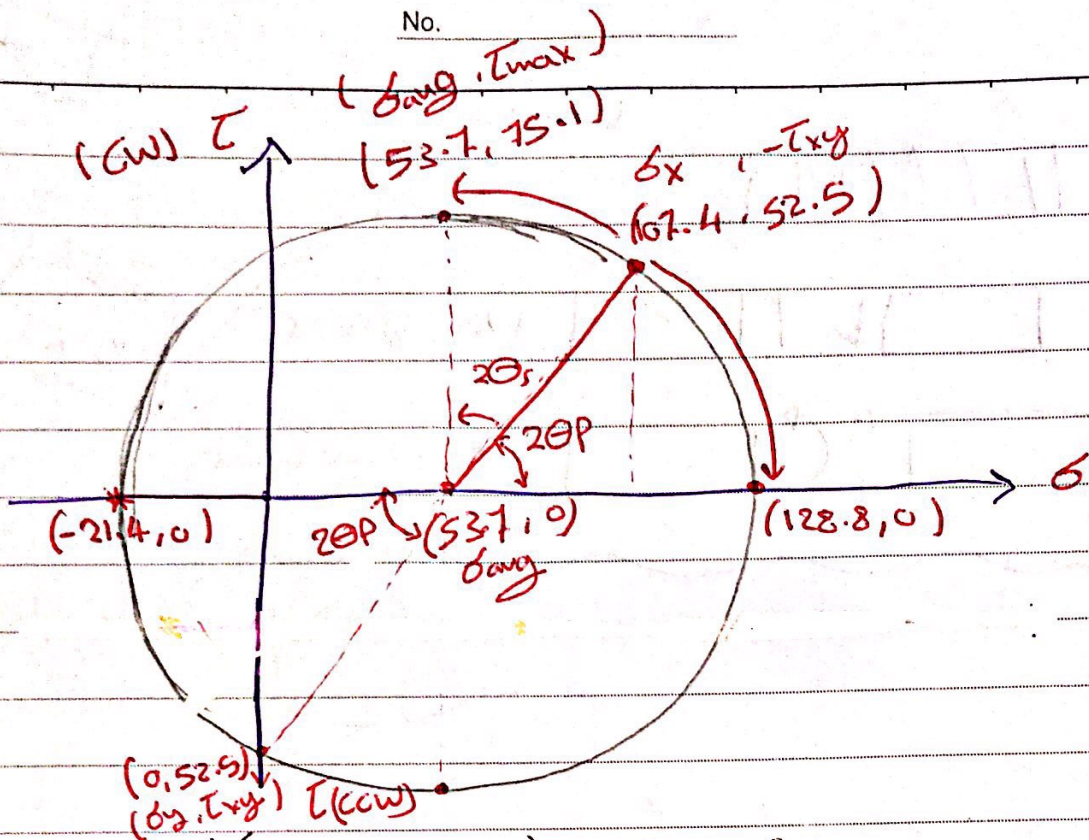 No.
(σavg, τmax)
(CW) τ
(53.7, 75.1)
σx, -τxy
(107.4, 52.5)
2θs
2θP
σ
(-21.4, 0)
2θP
(53.7, 0)
σavg
(128.8, 0)
(0, 52.5)
(σy, τxy)
τ(CCW)